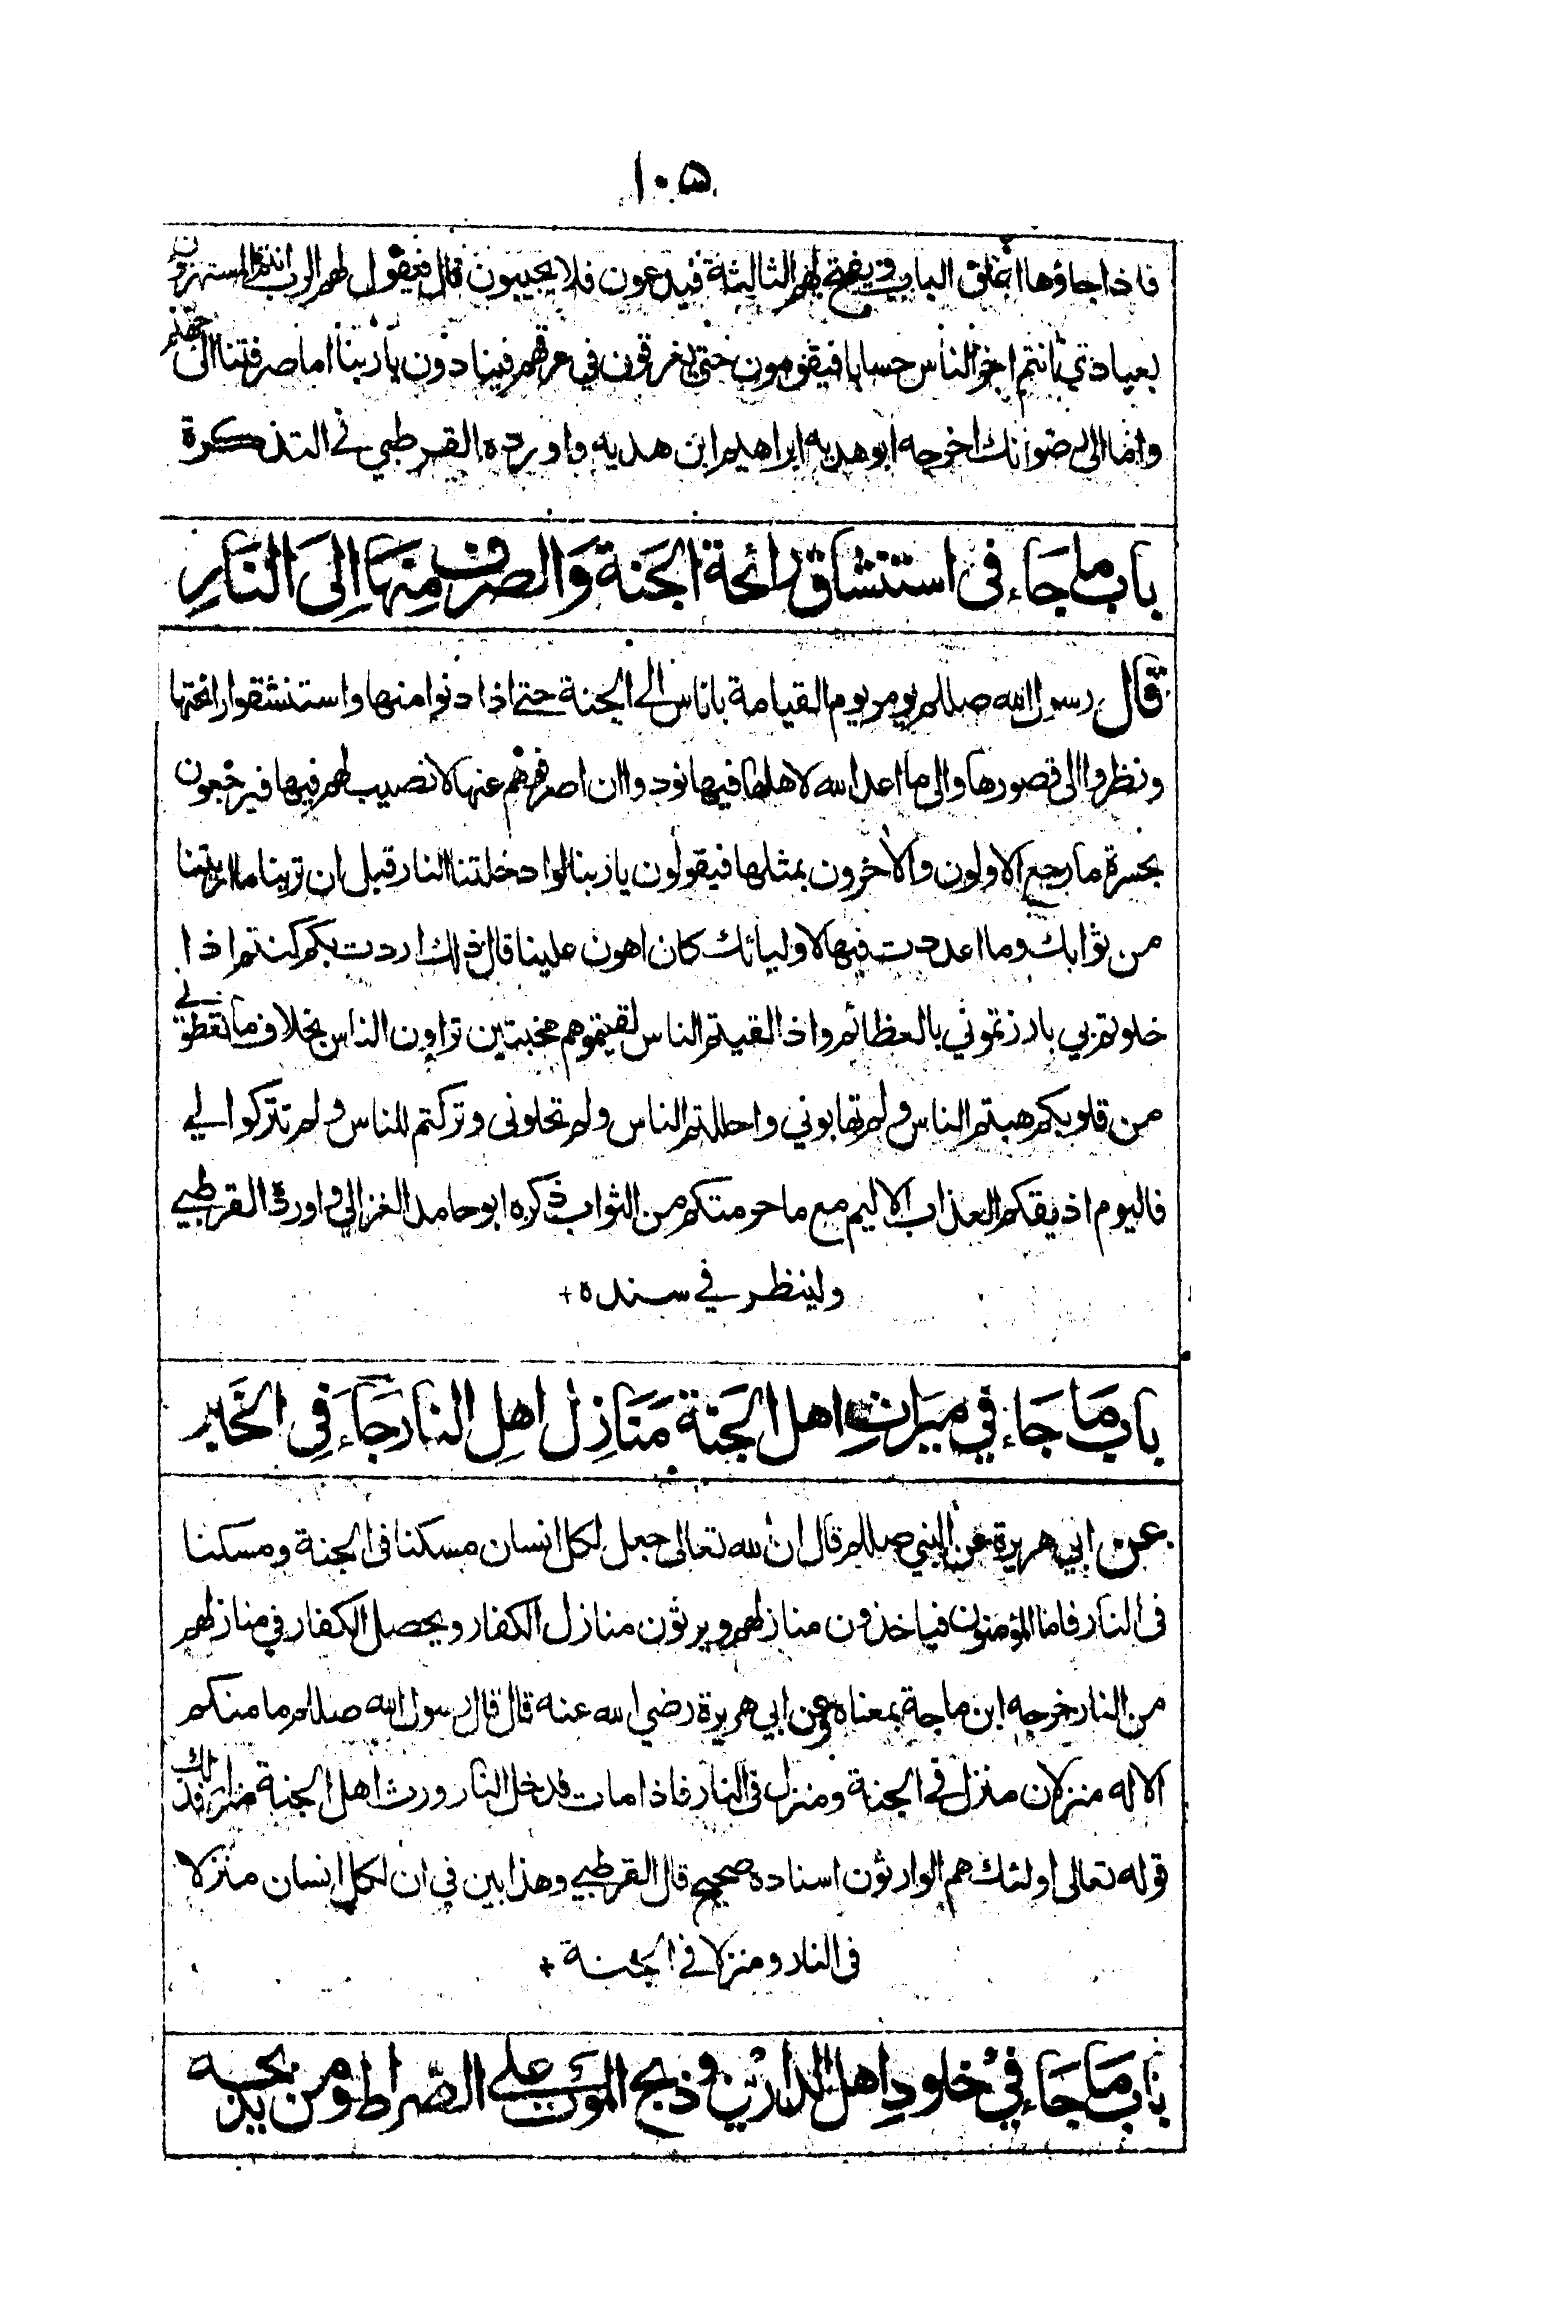 ١٠٥
فاذا جاؤها اغلق الباب ثم يفتح لهم الثالثة فيدعون فلا يجيبون قال فيقول لهم الرب انتم المستهزؤن
بعبادي انتم اخر الناس حسابا فيقومون حتى يغرقون في عرقهم فينادون ياربنا اما صرفتنا الى جهنم
واما الى رضوانك اخرجه ابو هدبه ابراهيم ابن هدبه واورده القرطبي في التذكرة
باب ما جاء في استنشاق رائحة الجنة والصرف منها الى النار
قال رسول الله صللم يومر يوم القيامة باناس الى الجنة حتى اذا دنوا منها واستنشقوا رائحتها
ونظروا الى قصورها والى ما اعد الله لاهلها فيها نودوا ان اصرفوهم عنها لا نصيب لهم فيها فيرجعون
بحسرة ما رجع الاولون والاخرون بمثلها فيقولون ياربنا لو ادخلتنا النار قبل ان ترينا ما اريتنا
من ثوابك وما اعددت فيها لاوليائك كان اهون علينا قال ذلك اردت بكم كنتم اذا
خلوتم بي بارزتموني بالعظائم واذا لقيتم الناس لقيتموهم مخبتين تراون الناس بخلاف ما تعطوني
من قلوبكم هبتم الناس ولم تهابوني واجللتم الناس ولم تجلوني وتركتم للناس ولم تتركوا لي
فاليوم اذيقكم العذاب الاليم مع ما حرمتكم من الثواب ذكره ابو حامد الغزالي واورده القرطبي
ولينظر في سنده +
باب ما جاء في ميراث اهل الجنة منازل اهل النار جاء في الخبر
عن ابي هريرة عن النبي صللم قال ان الله تعالى جعل لكل انسان مسكنا في الجنة ومسكنا
في النار فاما المؤمنون فياخذون منازلهم ويرثون منازل الكفار ويحصل الكفار في منازلهم
من النار خرجه ابن ماجة بمعناه وعن ابي هريرة رضي الله عنه قال قال رسول الله صللم ما منكم
الا له منزلان منزل في الجنة ومنزل في النار فاذا مات فدخل النار ورث اهل الجنة منزله فذلك
قوله تعالى اولئك هم الوارثون اسناده صحيح قال القرطبي وهذا بين في ان لكل انسان منزلا
في النار ومنزلا في الجنة +
باب ما جاء في خلود اهل الدارين وذبح الموت على الصراط ومن يذبحه